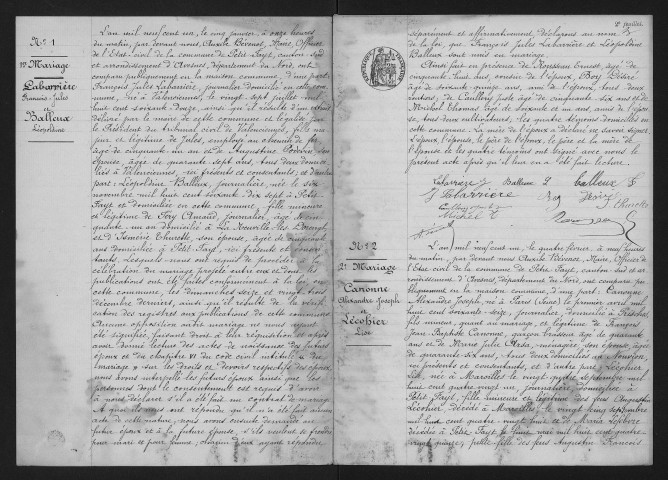 N° 1
1er Mariage
Labarrière
François Jules
et
Balleux
Léopoldine
L'an mil neuf cent un, le cinq janvier, à onze heures
du matin, par devant nous, Maire, Officier
de l'Etat-civil de la commune de Petit-Fayt, canton Sud
et arrondissement d'Avesnes, département du Nord, ont
comparu publiquement en la maison commune, d'une part:
François Jules Labarrière, journalier, domicilié en cette com-
mune, né à Valenciennes, le vingt sept juillet mil
huit cent soixante douze, ainsi qu'il résulte d'un extrait
délivré par le maire de cette commune et légalisé par
le Président du tribunal civil de Valenciennes, fils ma-
jeur et légitime de Jules, employé au chemin de fer,
âgé de cinquante un ans et de Augustine
épouse, âgée de quarante sept ans, tous deux domici-
liés à Valenciennes, ici présents et consentants, et d'autre
part: Léopoldine Balleux, journalière, née le six
novembre mil huit cent soixante dix sept à Petit-
Fayt et domiciliée en cette commune, fille mineure
et légitime de journalier, âgé de cin-
quante un an domicilié à La Neuville-les-Dorengt
et d'Isménie Thuette, son épouse, âgée de cinquante
ans domiciliée à Petit-Fayt, ici présents et consen-
tants. Lesquels nous ont requis de procéder à la
célébration du mariage projeté entre eux et dont les
publications ont été faites conformément à la loi, en
cette commune, les dimanches seize et vingt trois
décembre derniers, ainsi qu'il résulte de la vérifi-
cation des registres aux publications de cette commune
Aucune opposition audit mariage ne nous ayant
été signifiée, faisant droit à leur réquisition et après
avoir donné lecture des actes de naissance des futurs
époux et du chapitre VI du code civil intitulé « du
mariage » sur les droits et devoirs respectifs des époux
nous avons interpellé les futurs époux ainsi que les
personnes dont le consentement est requis d'avoir
à nous déclarer s'il a été fait un contrat de mariage
A quoi ils nous ont répondu qu'il n'a été fait aucun
acte de cette nature, nous avons ensuite demandé au
futur époux et à la future épouse, s'ils veulent se prendre
pour mari et pour femme, chacun d'eux ayant répondu
2e feuillet
séparément et affirmativement, déclarons au nom
de la loi, que François Jules Labarrière et Léopoldine
Balleux sont unis par le mariage.
Ainsi fait en présence de Rousseau Ernest, âgé de
cinquante huit ans, cousin de l'époux, Bry Désiré
âgé de soixante-onze ans, ami de l'époux, tous deux
rentiers, de Cailleux Jules âgé de cinquante six ans et de
Michel Thomas âgé de soixante et un ans, amis de l'épou-
se, tous deux cultivateurs, les quatre témoins domiciliés en
cette commune. La mère de l'épouse a déclaré ne savoir signer.
L'époux, l'épouse, le père de l'époux, le père et la mère de
l'épouse et les quatre témoins ont signé avec nous le
présent acte après qu'il leur en a été fait lecture.
Labarrière J Balleux L Balleux F
J Labarrière Bry Désiré J Thuette
Michel T
N° 2
2e Mariage
Caronne
Alexandre Joseph
et
Lécohier
Lise
L'an mil neuf cent un, le quatre février, à neuf heures
du matin, par devant nous, Maire, Officier de
l'Etat civil de la commune de Petit-Fayt, canton sud et ar-
rondissement d'Avesnes, département du Nord, ont comparu pu-
bliquement en la maison commune, d'une part: Caronne
Alexandre Joseph, né à Paris (Seine) le premier avril mil
huit cent soixante-seize, journalier, domicilié à
fils mineur, quant au mariage, et légitime de François
Jean Baptiste Caronne, garçon brasseur âgé de quarante
ans et de Marie Julie ménagère, son épouse, âgée
de quarante-six ans, tous deux domiciliés au Nouvion
ici présents et consentants, et d'autre part: Lécohier
Lise, née à Maroilles le vingt quatre septembre mil
huit cent quatre-vingt un, journalière, domiciliée à
Petit-Fayt, fille mineure et légitime des feus Augustin
Lécohier décédé à Maroilles le vingt cinq septembre
mil huit cent quatre-vingt huit et de Maria Lefebvre
décédée à Petit-Fayt le trois mai mil huit cent quatre-
vingt quinze, petite fille des feus Augustin François